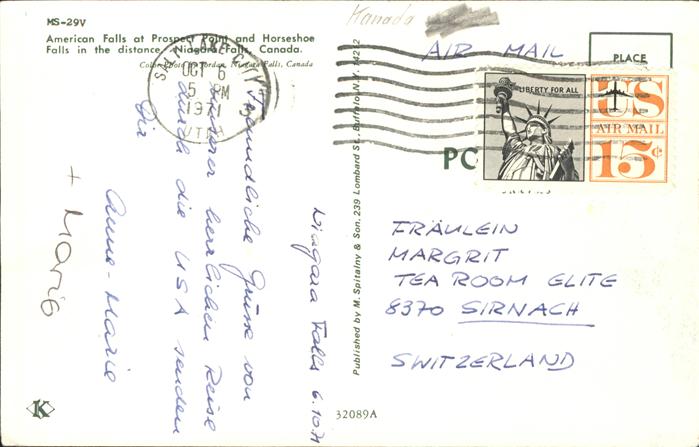 MS-29V
American Falls at Prospect Point and Horseshoe
Falls in the distance, Niagara Falls, Canada.
Color Photo by Jordan, Niagara Falls, Canada
Kanada
AIR MAIL
PLACE
OCT 6
5 PM
1971
UTAH
LIBERTY FOR ALL
US
AIR MAIL
15¢
PC
Niagara Falls 6.10.71
Freundliche Grüsse von
unserer herrlichen Reise
durch die USA senden
Dir
Anne-Marie
+ Mario
Published by M. Spitalny & Son, 239 Lombard St., Buffalo, N.Y. 14212
FRÄULEIN
MARGRIT
TEA ROOM ELITE
8370 SIRNACH
SWITZERLAND
K
32089A